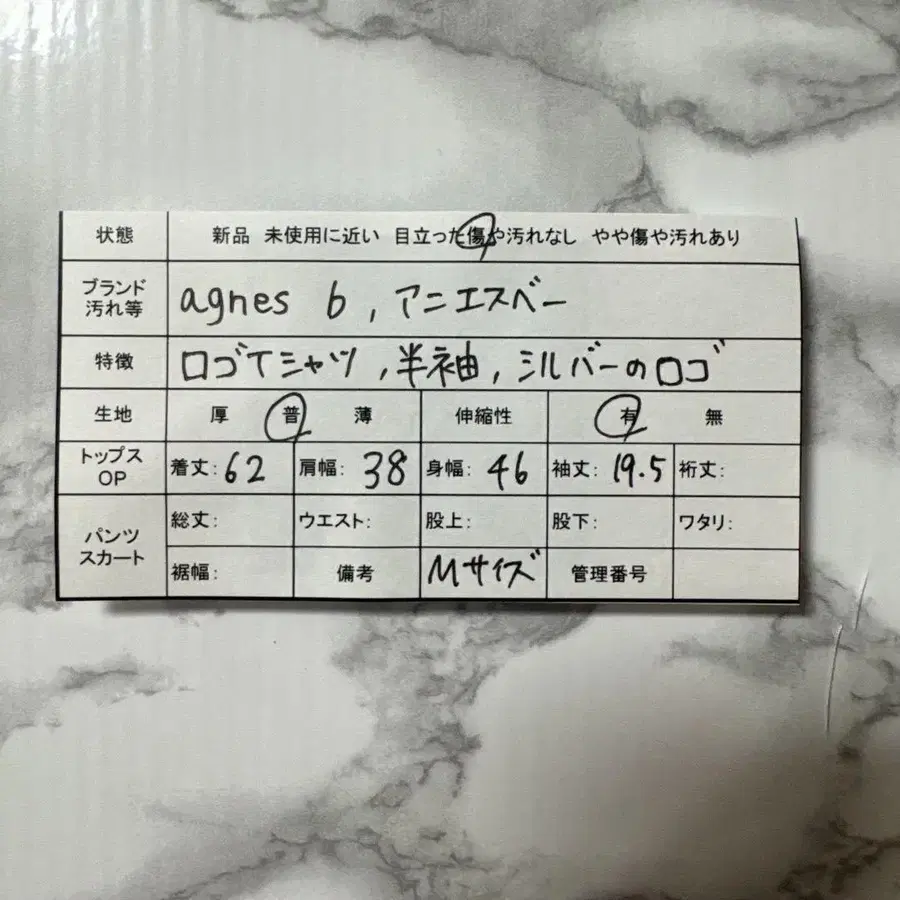 状態 新品 未使用に近い 目立った傷や汚れなし やや傷や汚れあり
ブランド
汚れ等
agnes b , アニエスベー
特徴 ロゴTシャツ , 半袖 , シルバーのロゴ
生地 厚 普 薄 伸縮性 有 無
トップス
OP
着丈: 62 肩幅: 38 身幅: 46 袖丈: 19.5 裄丈:
パンツ
スカート
総丈: ウエスト: 股上: 股下: ワタリ:
裾幅: 備考 Mサイズ 管理番号